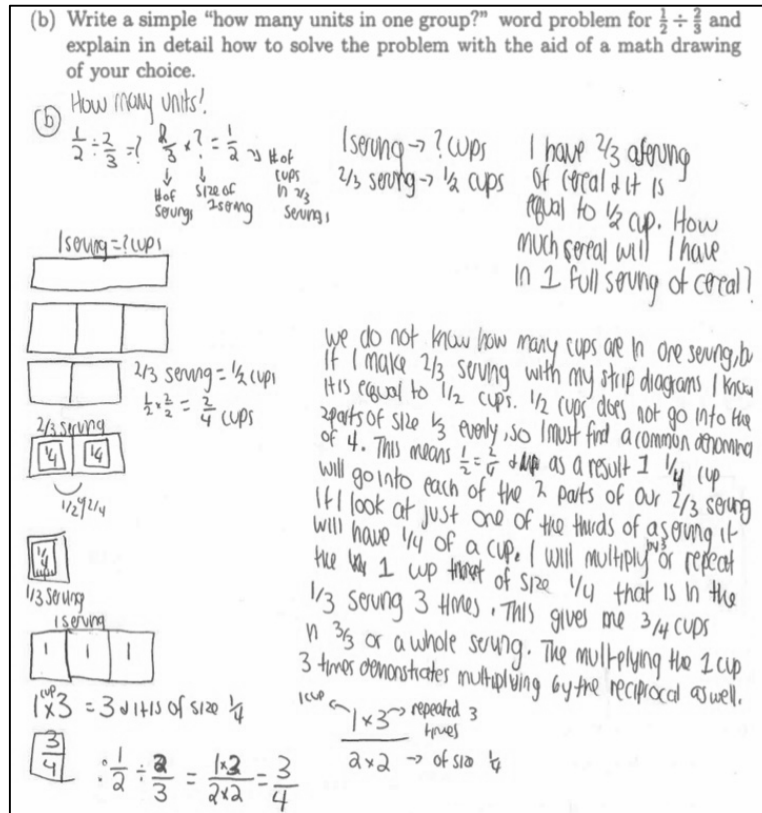 (b) Write a simple “how many units in one group?” word problem for 1/2 ÷ 2/3 and
explain in detail how to solve the problem with the aid of a math drawing
of your choice.
(b) How many units!
1/2 ÷ 2/3 = ? 2/3 × ? = 1/2 → # of
cups
in 2/3
servings
# of
servings
size of
1 serving
1 serving → ? cups
2/3 serving → 1/2 cups
I have 2/3 a serving
of cereal & it is
equal to 1/2 cup. How
much cereal will I have
in 1 full serving of cereal?
1 serving = ? cups
2/3 serving = 1/2 cups
1/2 × 2/2 = 2/4 cups
2/3 serving
1/4 1/4
1/2 2/4
1/4
1/3 serving
1 serving
1 1 1
1 cup × 3 = 3 it is of size 1/4
3/4
∴ 1/2 ÷ 2/3 = 1×3/2×2 = 3/4
we do not know how many cups are in one serving, b
If I make 2/3 serving with my strip diagrams I know
it is equal to 1/2 cups. 1/2 cups does not go into the
2 parts of size 1/3 evenly, so I must find a common denomina
of 4. This means 1/2 = 2/4 as a result 1 1/4 cup
will go into each of the 2 parts of our 2/3 serving
If I look at just one of the thirds of a serving it
will have 1/4 of a cup. I will multiply by 3 or repeat
the 1 cup of size 1/4 that is in the
1/3 serving 3 times. This gives me 3/4 cups
in 3/3 or a whole serving. The multiplying the 1 cup
3 times demonstrates multiplying by the reciprocal as well.
1 cup
1 × 3 → repeated 3
times
2 × 2 → of size 1/4